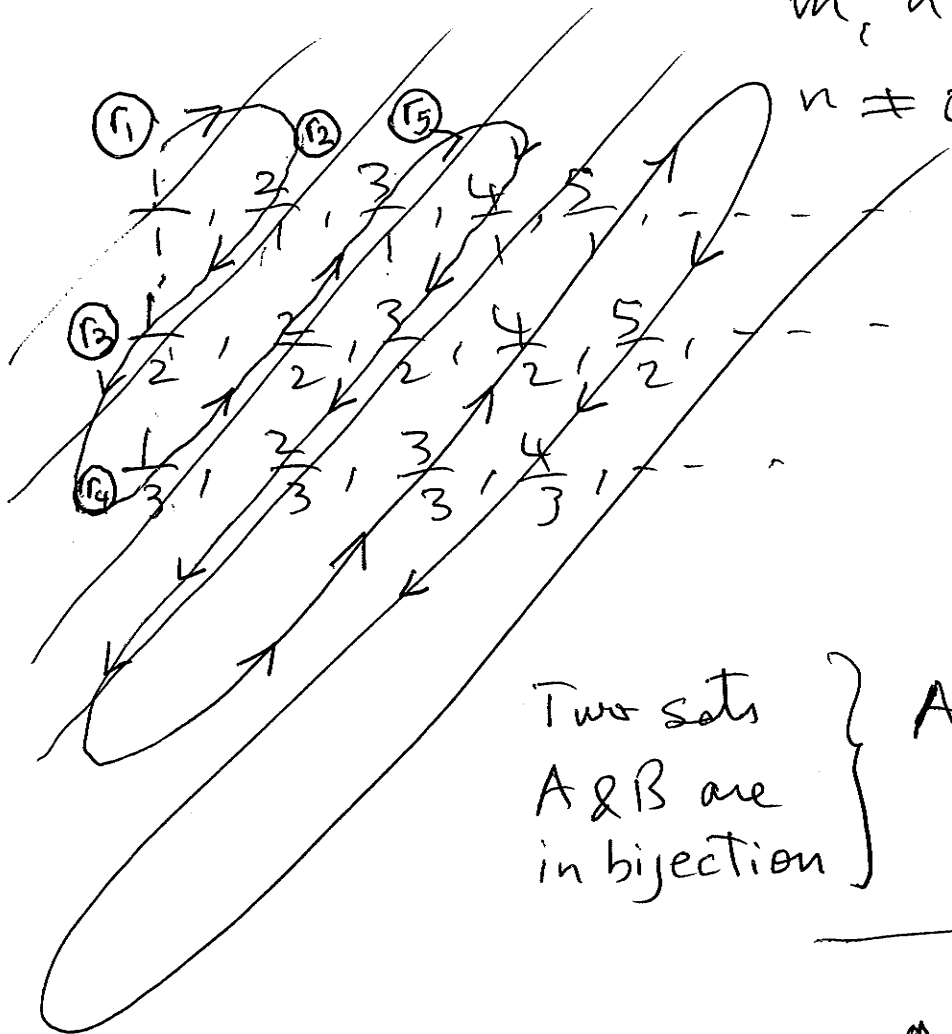 m, n
n ≠
r1 r2 r5
1/1, 2/1, 3/1, 4/1, 5/1, - - - -
r3 1/2, 2/2, 3/2, 4/2, 5/2, - - -
r4 1/3, 2/3, 3/3, 4/3, - - -
Two sets } A
A & B are
in bijection